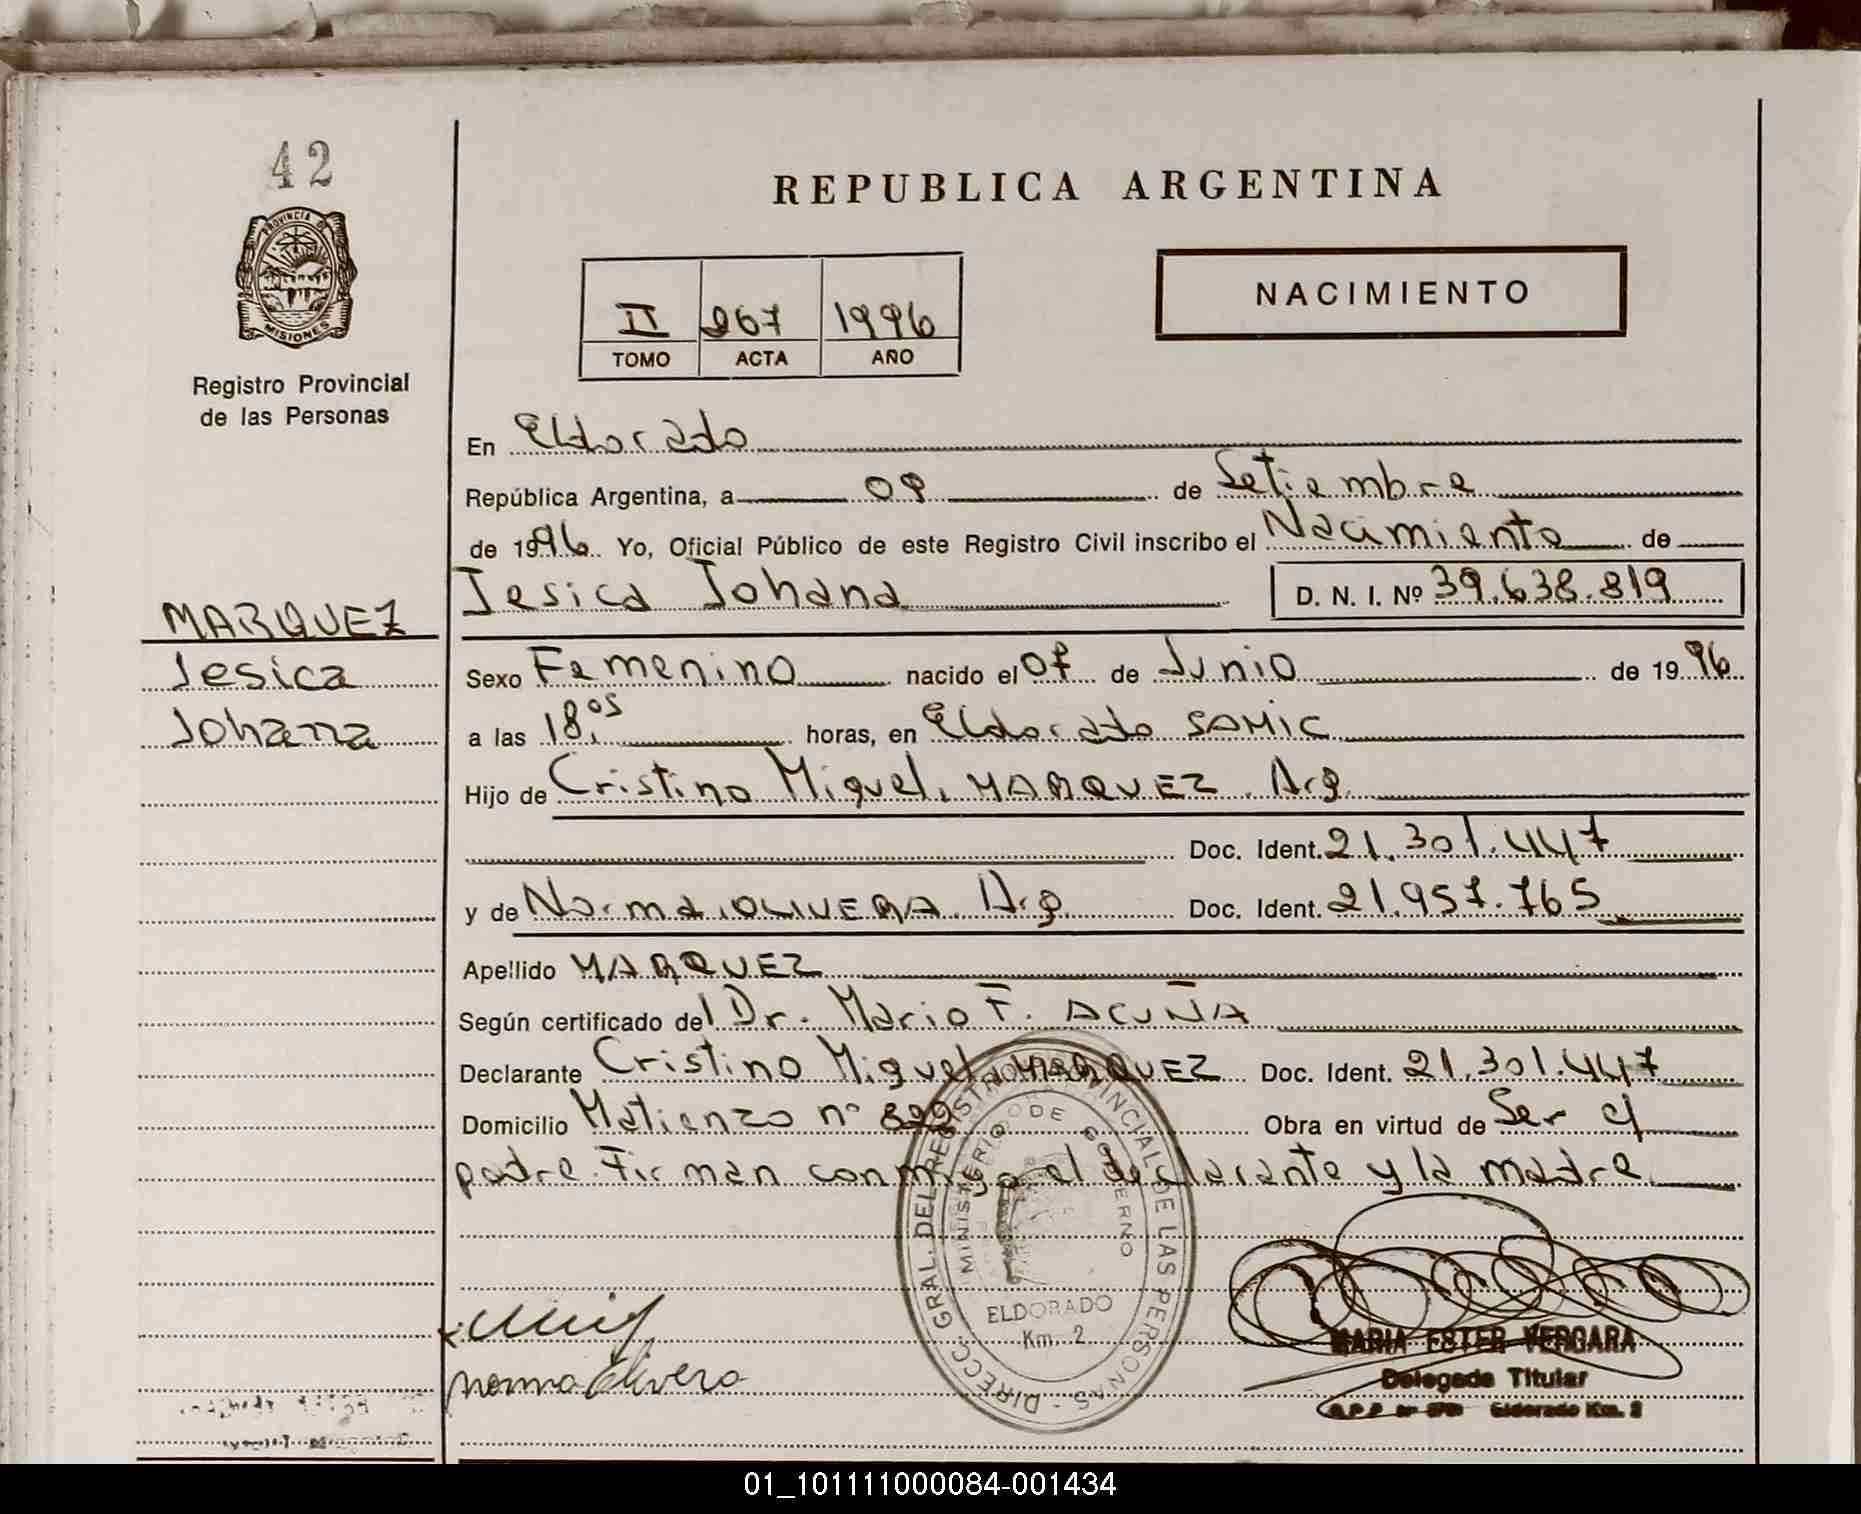 42
PROVINCIA DE
MISIONES
Registro Provincial
de las Personas
MARQUEZ
Jesica
Johana
REPUBLICA ARGENTINA
II 267 1996
TOMO ACTA AÑO
NACIMIENTO
En Eldorado
República Argentina, a 09 de Setiembre
de 1996 Yo, Oficial Público de este Registro Civil inscribo el Nacimiento de
Jesica Johana D. N. I. Nº 39.638.819
Sexo Femenino nacido el 07 de Junio de 1996
a las 18:05 horas, en Eldorado SAMIC
Hijo de Cristino Miguel MARQUEZ. Arg.
Doc. Ident. 21.301.447
y de Norma OLIVERA. Arg. Doc. Ident. 21.957.765
Apellido MARQUEZ
Según certificado del Dr. Mario F. ACUÑA
Declarante Cristino Miguel MARQUEZ Doc. Ident. 21.301.447
Domicilio Matienzo nº 899 Obra en virtud de Ser el
padre. Firman conmigo el declarante y la madre
DIRECC. GRAL. DEL REGISTRO PROVINCIAL DE LAS PERSONAS
MINISTERIO DE GOBIERNO
ELDORADO
Km. 2
norma Olivera
MARIA ESTER VERGARA
Delegada Titular
Eldorado Km. 2
01_101111000084-001434